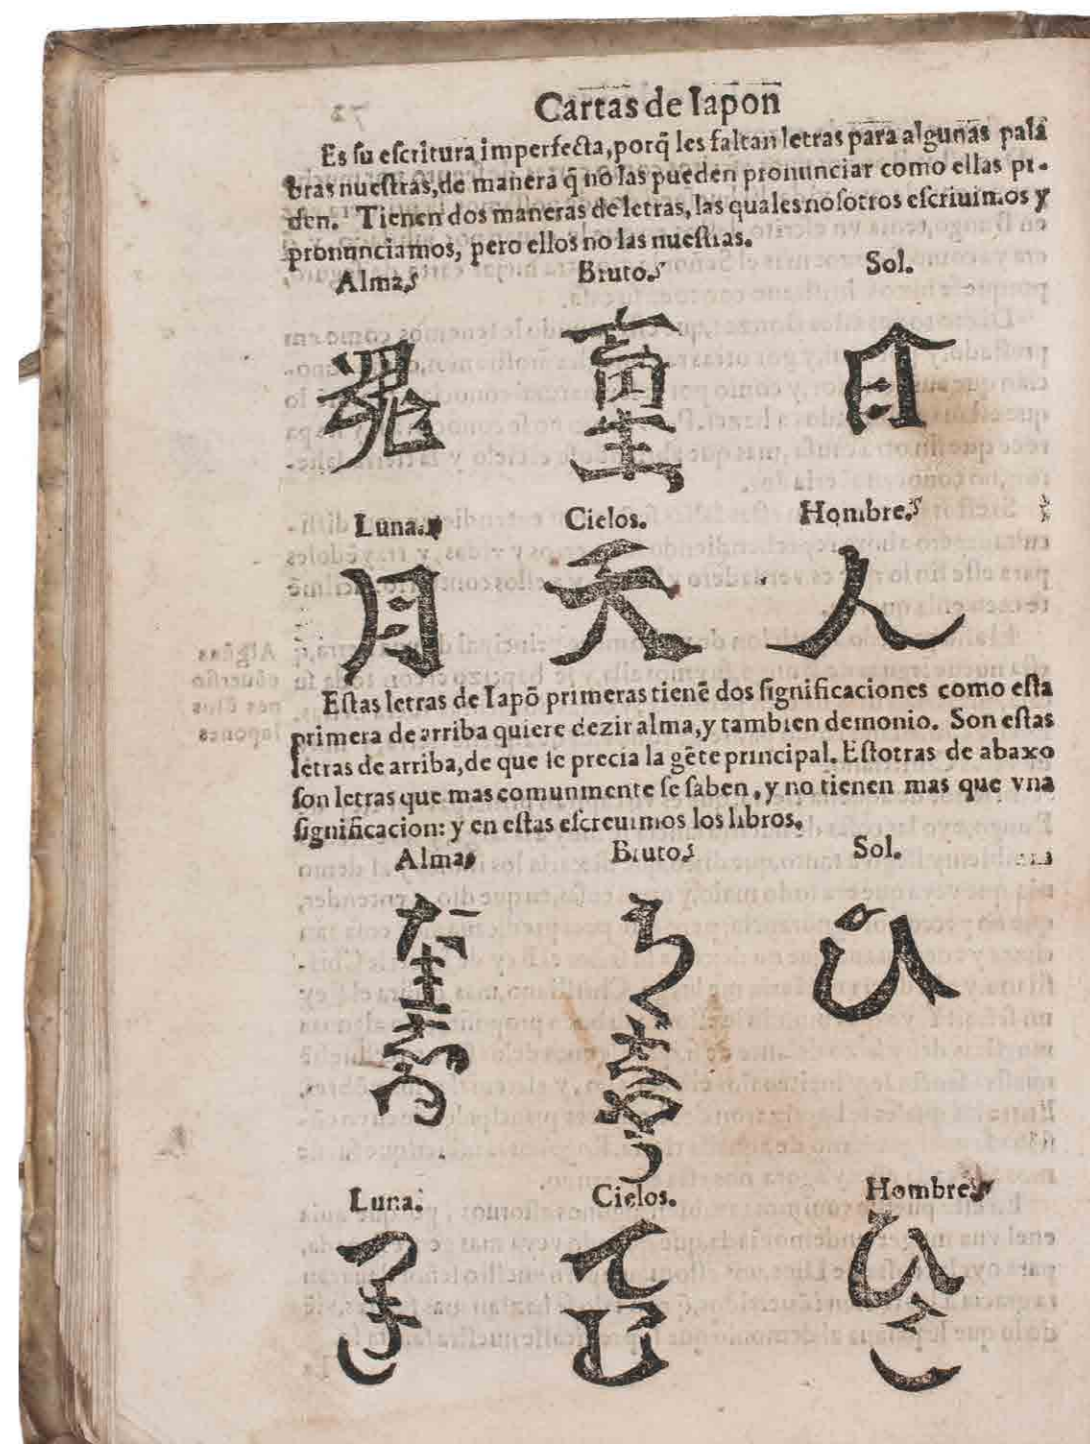 Cartas de Iapon
Es ſu eſcritura imperfecta, porq̃ les faltan letras para algunas pala
bras nueſtras, de manera q̃ no las pueden pronunciar como ellas pi-
den. Tienen dos maneras de letras, las quales noſotros eſcriuimos y
pronunciamos, pero ellos no las nueſtras.
Almas Brutos Sol.
魂 畜生 日
Luna. Cielos. Hombres
月 天 人
Eſtas letras de Iapõ primeras tienẽ dos ſignificaciones como eſta
primera de arriba quiere dezir alma, y tambien demonio. Son eſtas
letras de arriba, de que ſe precia la gẽte principal. Eſtotras de abaxo
ſon letras que mas comunmente ſe ſaben, y no tienen mas que vna
ſignificacion: y en eſtas eſcreuimos los libros.
Almas Brutos Sol.
たましゐ ちくしやう ひ
Luna. Cielos. Hombres
つき てむ ひと